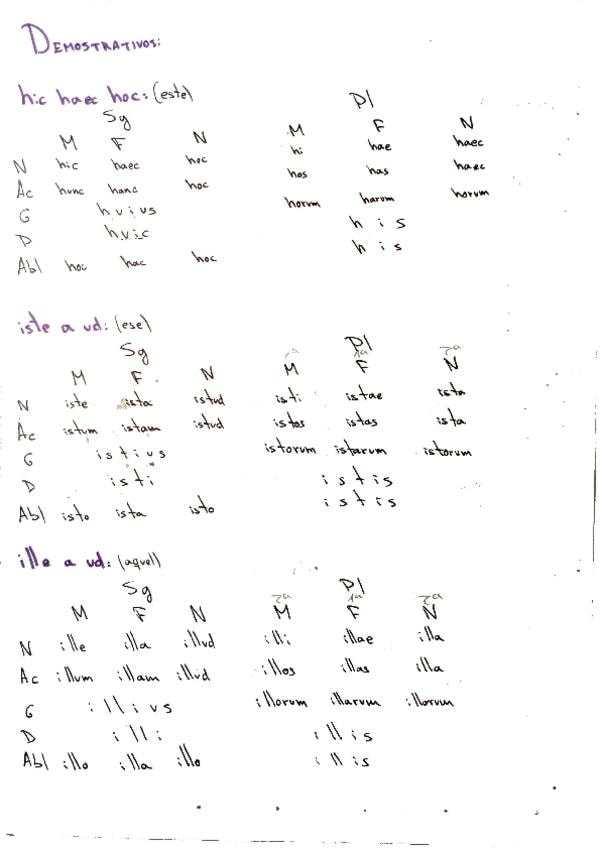 DEMOSTRATIVOS:
hic haec hoc: (este)
Sg Pl
M F N M F N
N hic haec hoc hi hae haec
Ac hunc hanc hoc hos has haec
G huius horum harum horum
D huic his
Abl hoc hac hoc his
iste a ud: (ese)
Sg Pl
2a 1a 2a
M F N M F N
N iste ista istud isti istae ista
Ac istum istam istud istos istas ista
G istius istorum istarum istorum
D isti istis
Abl isto ista isto istis
ille a ud: (aquel)
Sg Pl
2a 1a 2a
M F N M F N
N ille illa illud illi illae illa
Ac illum illam illud illos illas illa
G illius illorum illarum illorum
D illi illis
Abl illo illa illo illis